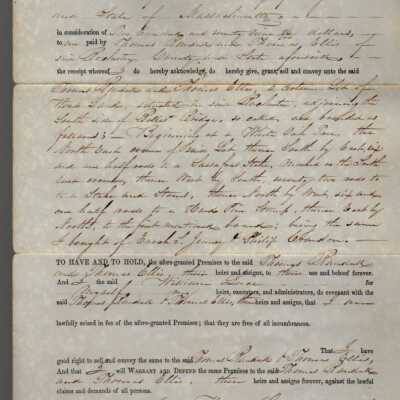 and State of Massachusetts
in consideration of Six hundred and seventy dollars,
to me paid by Thomas Randall and Thomas Ellis of
said Rochester County and State aforesaid
the receipt whereof I do hereby acknowledge, do hereby give, grant, sell and convey unto the said
Thomas Randall and Thomas Ellis, a certain Lot of
Wood Land, situated in said Rochester, adjoining the
South side of Bridge, so called, and bounded as
follows; Beginning at a White Oak Tree, the
North East corner of said Lot, thence South by East, six
and one half rods to a Sassafras Stake, marked in the South
East corner, thence West by South, seventy two rods to
to a Stake and Stones, thence North by West, six and
one half rods to a Stump, thence East by
North, to the first mentioned bound; being the same
I bought of Enoch & Philip
TO HAVE AND TO HOLD, the afore-granted Premises to the said Thomas Randall
and Thomas Ellis, their heirs and assigns, to their use and behoof forever.
And I the said William for
myself my heirs, executors, and administrators, do covenant with the
said Thomas Randall & Thomas Ellis, their heirs and assigns, that I am
lawfully seized in fee of the afore-granted Premises; that they are free of all incumbrances.
That I have
good right to sell and convey the same to the said Thomas Randall & Thomas Ellis,
And that I will WARRANT AND DEFEND the same Premises to the said Thomas Randall
and Thomas Ellis, their heirs and assigns forever, against the lawful
claims and demands of all persons.